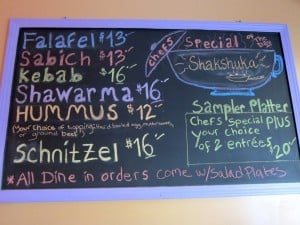 Falafel $13
Sabich $13
Kebab $16
Shawarma $16
HUMMUS $12
(Your choice of topping: hard boiled egg, mushrooms,
or ground beef)
Schnitzel $16
*All Dine in orders come w/Salad Plates
Chefs Special of The Day
Shakshuka
Sampler Platter
Chefs Special PLUS
your choice
of 2 entrées
$20